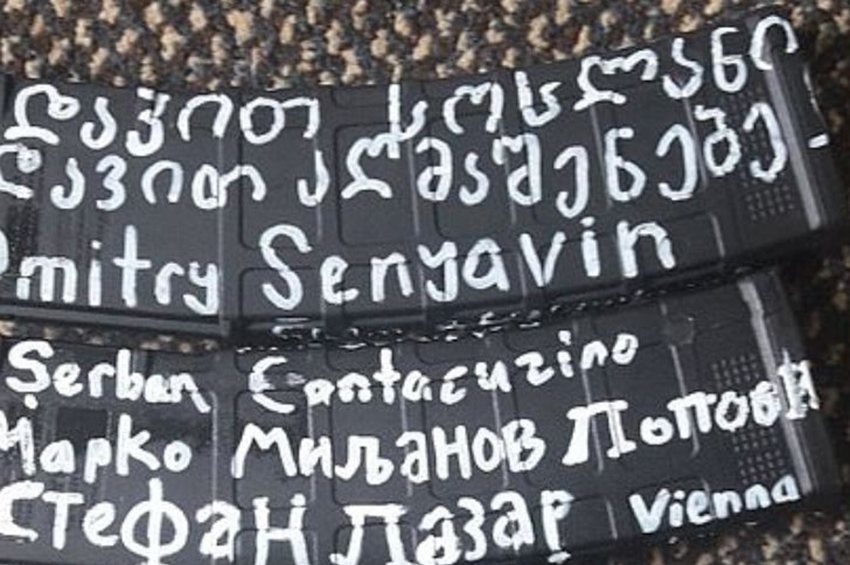 დავით სოსლანი
დავით აღმაშენებე-
Dmitry Senyavin
Șerban Cantacuzino
Марко Миљанов Попови
Стефан Лазар Vienna